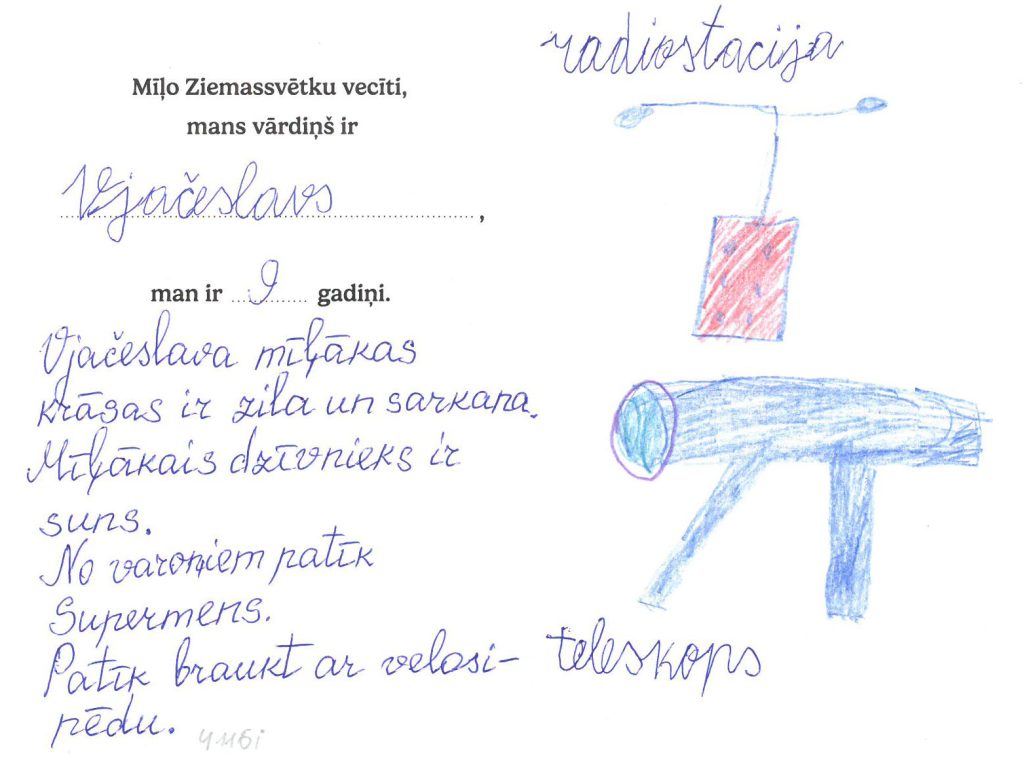 radiostacija
Mīļo Ziemassvētku vecīti,
mans vārdiņš ir
Vjačeslavs,
man ir 9 gadiņi.
Vjačeslava mīļākas
krāsas ir zila un sarkana.
Mīļākais dzīvnieks ir
suns.
No varoņiem patīk
Supermens.
Patīk braukt ar velosi-
pēdu.
teleskops